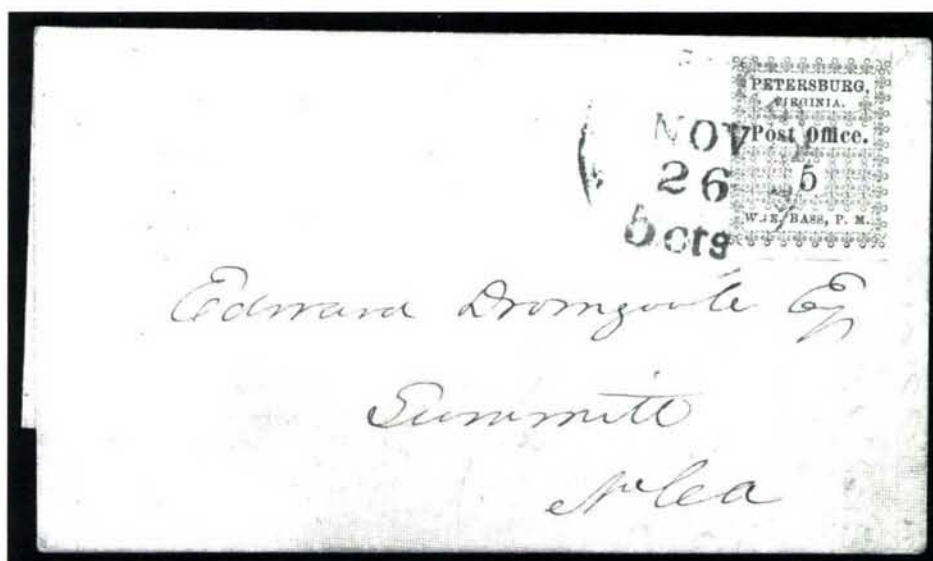 PETERSBURG,
VIRGINIA.
Post Office.
5
W. E. BASS, P. M.
NOV
26
5 cts
Edward Dromgoole Esq
Summitt
N Ca